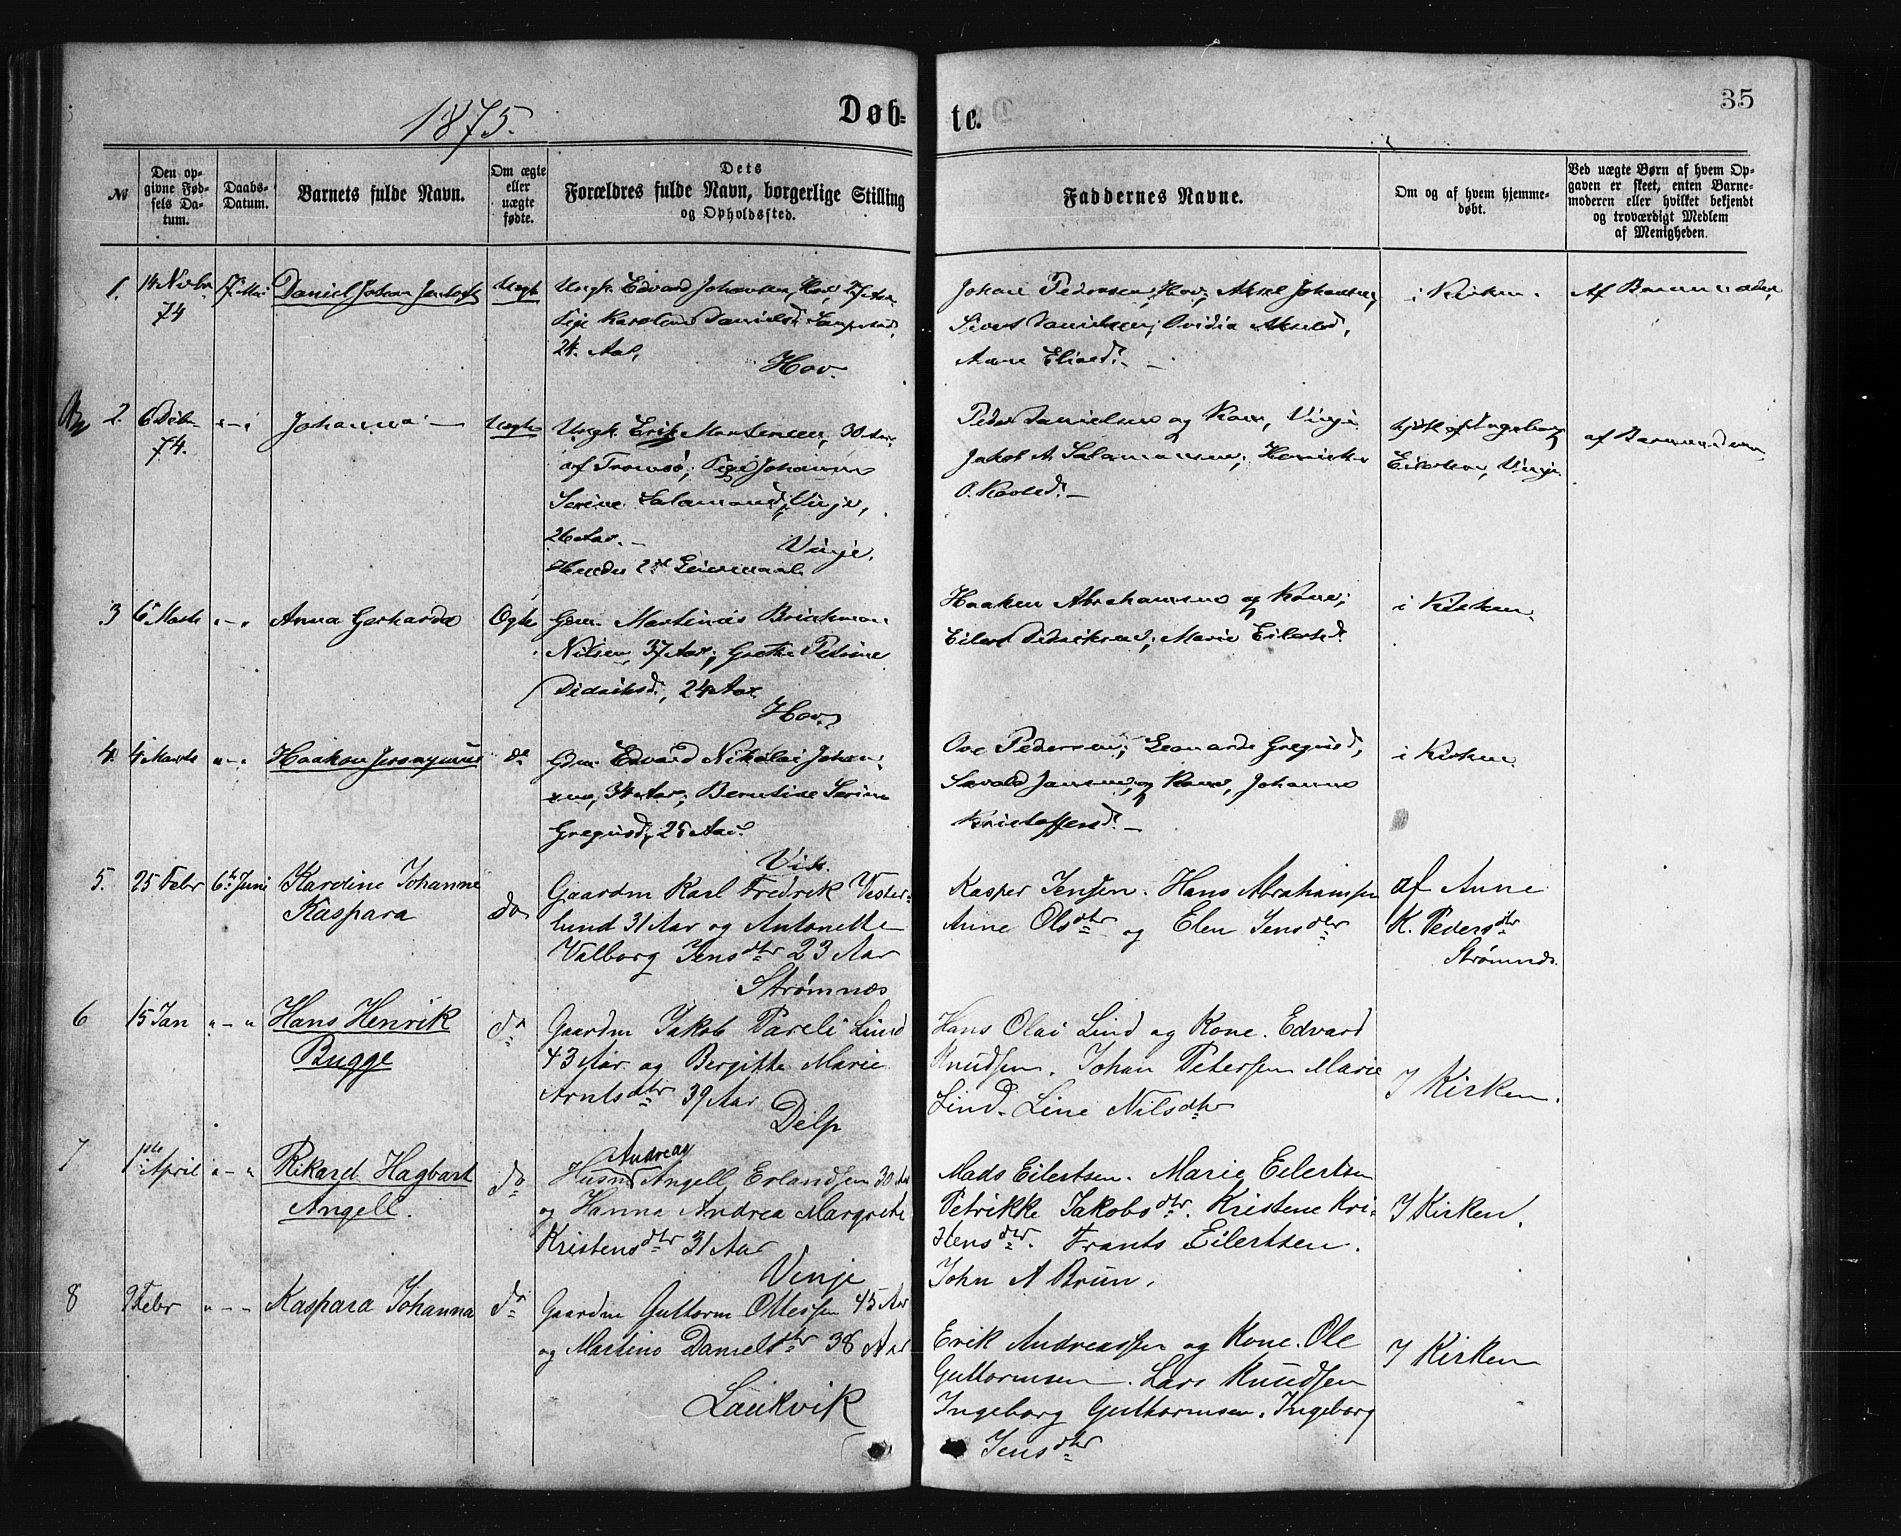 1875.
Døb-
te.
35
№
Den op-
givne Fød-
sels Da-
tum.
Daabs-
Datum.
Barnets fulde Navn.
Om ægte
eller
uægte
fødte.
Dets
Forældres fulde Navn, borgerlige Stilling
og Opholdssted.
Faddernes Navne.
Om og af hvem hjemme-
døbt.
Ved uægte Børn af hvem Op-
gaven er skeet, enten Barne-
moderen eller hvilket bekjendt
og troværdigt Medlem
af Menigheden.
1.
14 Novbr
74
17. Mai
Daniel Johan
Uægte
Ungk. Edvard Johansen, Hov, 27 Aar
Pige Karoline Danielsd.
24. Aar,
Hov.
Johan Pedersen, Hov; Aksel Johansen,
Sivert Danielsen; Ovidia Akseld.
Anne Eliasd. —
i Kirken.
Af Barnemoder
2.
6 Debr
74.
" - "
Johanna —
Uægte
Ungk. Erik Mortensen, 30 Aar
af Tromsø; Pige Johanna
Serine Salamonsd. Vinje,
26 Aar. —
Vinje.
Hendes 2d Leiermaal.
Peder Danielsen og Kone, Vinje
Jakob A. Salamonsen; Henrikke
O. Karlsd. —
hjdt af Ingeborg
Vinje
af Barnemoderen
3
6 Marts
" - "
Anna Gerharda
Ægte
Gdm. Martinus Brinkman
Nilsen, 37 Aar; Grethe Petrine
Didriksd., 24 Aar.
Hov.
Haaken Abrahamsen og Kone;
Eilert Didriksen; Marie Eilertsd.
i Kirken.
4.
4 Marts
" - "
Haakon Jeronymus
do
Gdm. Edvard Nikolai Johan-
sen, 34 Aar; Berntine Serine
Gregusd., 25 Aar.
Vik.
Ove Pedersen; Leonarde Gregusd.,
Sevald Jansen og Kone, Johanna
Kristoffersd. —
i Kirken.
5.
25 Febr
6te Juni
Karoline Johanne
Kaspara
do
Gaardm Karl Fredrik Vester-
lund 31 Aar og Antonette
Valborg Jensdtr 23 Aar
Strømnes
Kasper Jensen. Hans Abrahamsen
Anne Olsdtr og Elen Jensdtr
af Anne
K. Pedersdtr
Strømnes.
6
15 Jan
" - "
Hans Henrik
Bugge
do
Gaardm Jakob Pareli Lind
43 Aar og Bergitte Marie
Arntsdtr 39 Aar
Delp
Hans Olai Lind og Kone. Edvard
Knudsen. Johan Petersen Marie
Lind. Line Nilsdtr
I Kirken.
7
1ste April
" - "
Rikard Hagbart
Angell.
do
Andreas
Husm Angell Erlandsen 30 Aar
og Hanna Andrea Margrete
Kristensdtr 31 Aar
Vinje
Mads Eilertsen. Marie Eilertsen
Petrikke Jakobsdtr. Kristene Kri-
stensdtr. Frants Eilertsen.
John A Brun.
I Kirken.
8
9 Febr
" - "
Kaspara Johanna
do
Gaardm Guttorm Ottessen 45 Aar
og Martine Danielsdtr 38 Aar
Laukvik
Erik Andreassen og Kone. Ole
Guttormsen. Lars Knudsen
Ingeborg Guttormsen. Ingeborg
Jensdtr
I Kirken